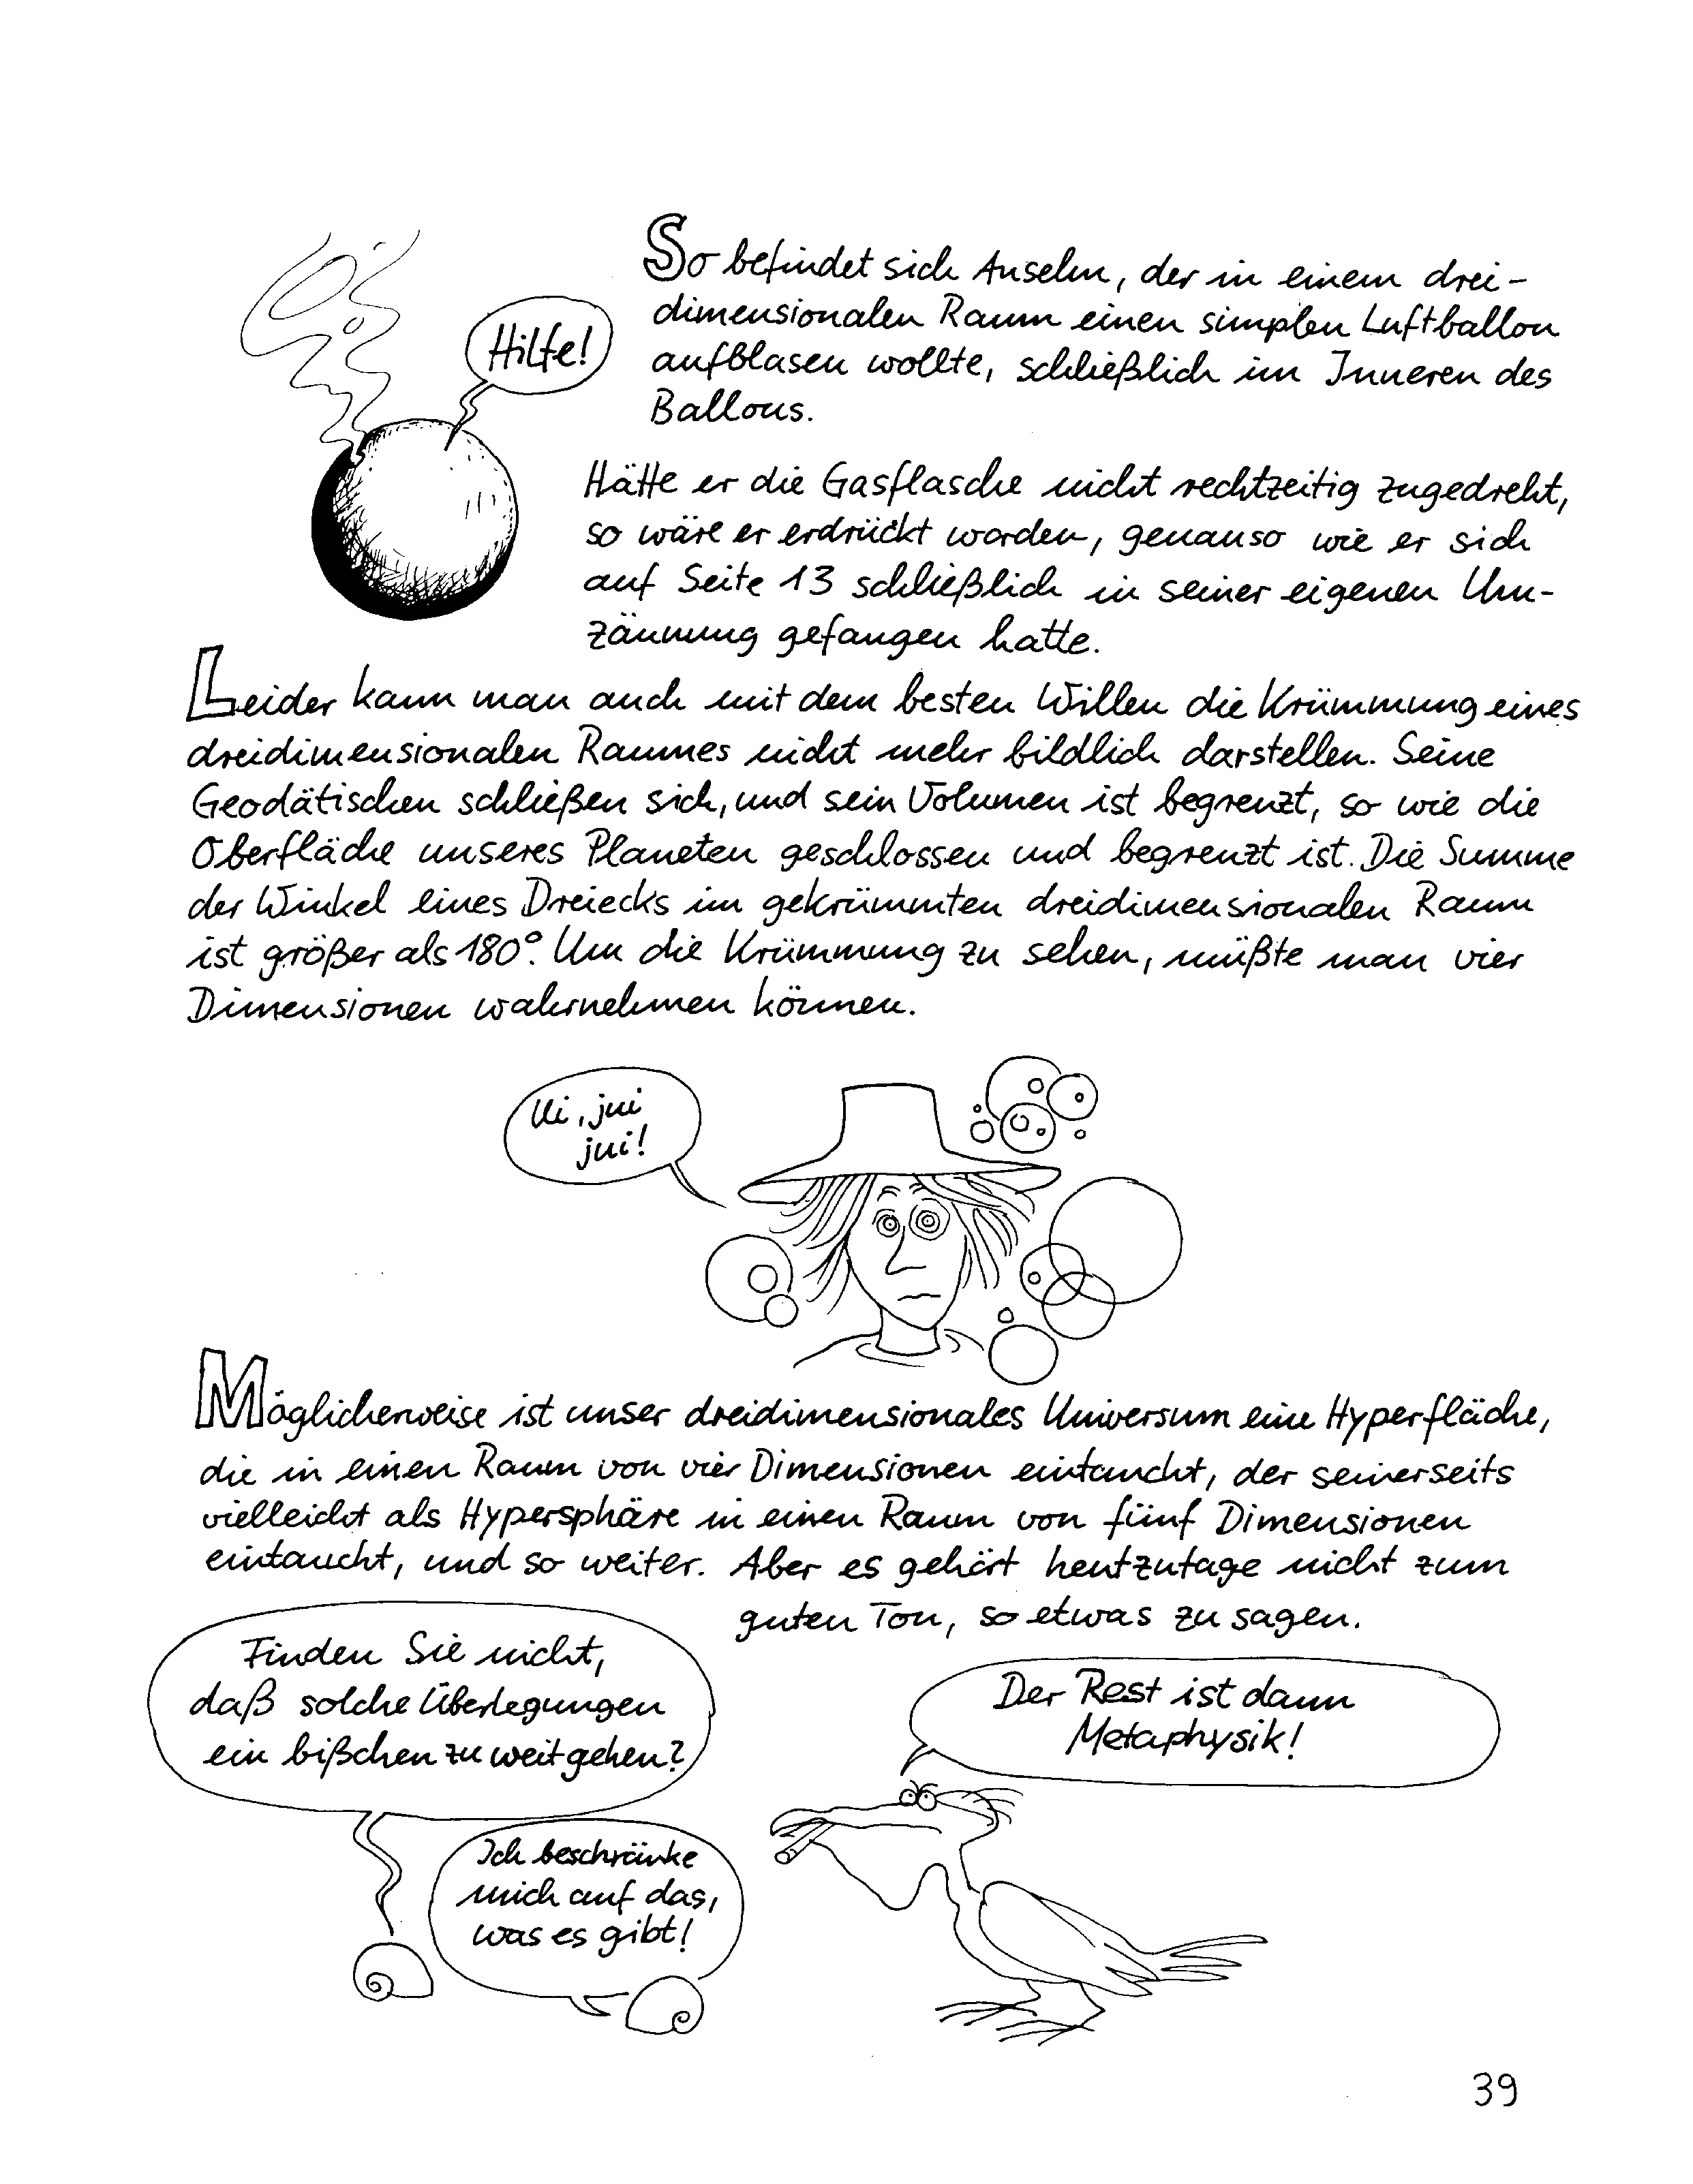 Hilfe!
So befindet sich Anselm, der in einem drei-
dimensionalen Raum einen simplen Luftballon
aufblasen wollte, schließlich im Inneren des
Ballons.
Hätte er die Gasflasche nicht rechtzeitig zugedreht,
so wäre er erdrückt worden, genauso wie er sich
auf Seite 13 schließlich in seiner eigenen Um-
zäunung gefangen hatte.
Leider kann man auch mit dem besten Willen die Krümmung eines
dreidimensionalen Raumes nicht mehr bildlich darstellen. Seine
Geodätischen schließen sich, und sein Volumen ist begrenzt, so wie die
Oberfläche unseres Planeten geschlossen und begrenzt ist. Die Summe
der Winkel eines Dreiecks im gekrümmten dreidimensionalen Raum
ist größer als 180°. Um die Krümmung zu sehen, müßte man vier
Dimensionen wahrnehmen können.
Ui, jui
jui!
Möglicherweise ist unser dreidimensionales Universum eine Hyperfläche,
die in einen Raum von vier Dimensionen eintaucht, der seinerseits
vielleicht als Hypersphäre in einen Raum von fünf Dimensionen
eintaucht, und so weiter. Aber es gehört heutzutage nicht zum
guten Ton, so etwas zu sagen.
Finden Sie nicht,
daß solche Überlegungen
ein bißchen zu weit gehen?
Der Rest ist dann
Metaphysik!
Ich beschränke
mich auf das,
was es gibt!
39